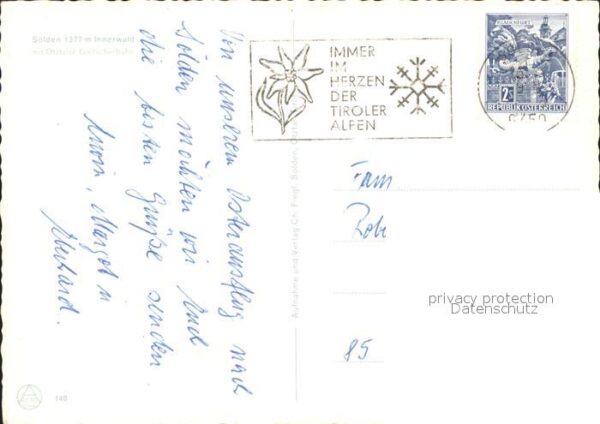 Sölden 1377 m Innerwald
mit Ötztaler Gletscherbahn
Von unserem Osterausflug nach
Sölden möchten wir Euch
die besten Grüße senden
Erwin, Margot u
Eberhard.
Aufnahme und Verlag Ch. Fregl, Sölden, Ötztal
IMMER
IM
HERZEN
DER
TIROLER
ALPEN
KLAGENFURT
2S
REPUBLIK ÖSTERREICH
6450
Fam
85
privacy protection
Datenschutz
140